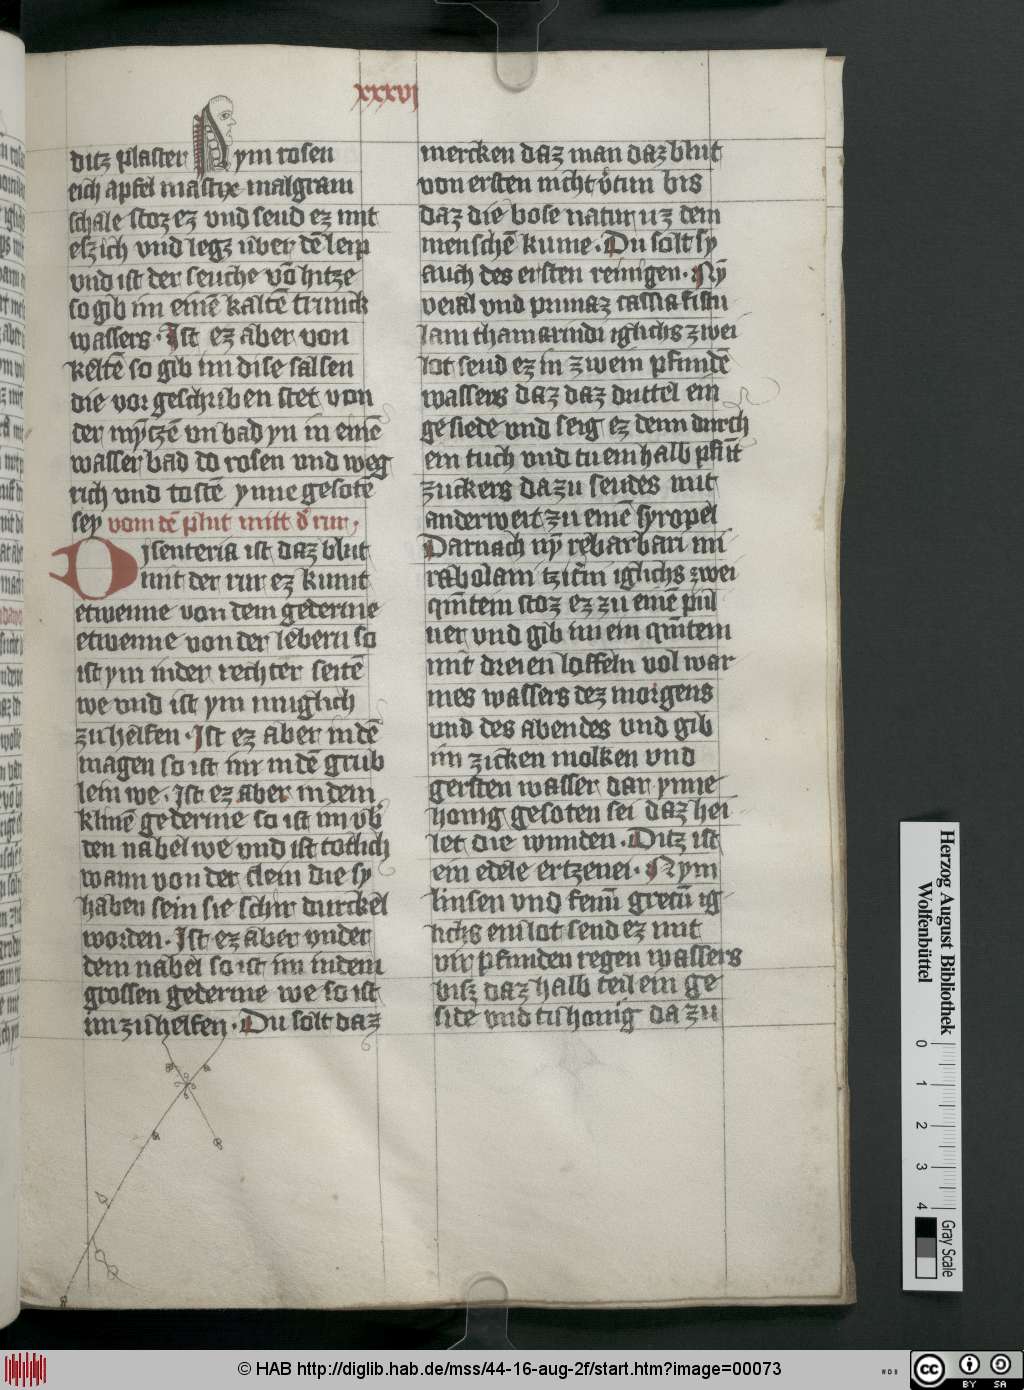 xxxvj
ditz plaster Nym rosen
eich apfel mastyx malgram
schale stoz ez vnd seud ez mit
eszich vnd legz uber dē leip
vnd ist der seuche vō hitze
so gib im einē kaltē trinck
wassers. Ist ez aber von
keltē so gib im dise salsen
die vorgeschriben stet von
der mÿczē vn bad yn in einē
wasser bad do rosen vnd weg
rich vnd tostē ynne gesotē
sey vom dē plut mitt d' rur,
Disenteria ist daz blut
mit der rur ez kumt
etwenne von dem gederme
etwenne von der lebern so
ist ym in der rechter seitē
we vnd ist ym muglich
zu helfen. Ist ez aber in dē
magen so ist im in dē grub
lein we. Ist ez aber in dem
klinē gederme so ist im vb'
den nabel we vnd ist totlich
wann von der clein die sy
haben sein sie schir durckel
worden. Ist ez aber vnder
dem nabel so ist im in dem
grossen gederme we so ist
im zu helfen. Du solt daz
mercken daz man daz blut
von ersten nicht v'tun bis
daz die bose natur uz dem
menschē kume. Du solt sy
auch des ersten reinigen. Nȳ
veial vnd prunaz cassia fistu
lam thamarindi iglichs zwei
lot seud ez in zwein pfundē
wassers daz daz drittel ein
gesiede vnd seig ez denn durch
ein tuch vnd tu ein halb pfūt
zuckers da zu seudes mit
anderweit zu einē syropel
Darnach nȳ rebarbari mi
rabolani tzit'ni iglichs zwei
qm̄tem stoz ez zu einē pul
uer vnd gib im ein qm̄tem
mit dreien loffeln vol war
mes wassers dez morgens
vnd des abendes vnd gib
im zicken molken vnd
gersten wasser dar ynne
honig gesoten sei daz hei
let die wunden. Ditz ist
ein edele ertzenei. Nym
linsen vnd fenū grecū ig
lichs ein lot seud ez mit
vir pfunden regen wassers
bisz daz halb teil ein ge
side vnd tu honig da zu
Herzog August Bibliothek
Wolfenbüttel
0 1 2 3 4
Gray Scale
© HAB http://diglib.hab.de/mss/44-16-aug-2f/start.htm?image=00073
cc BY SA